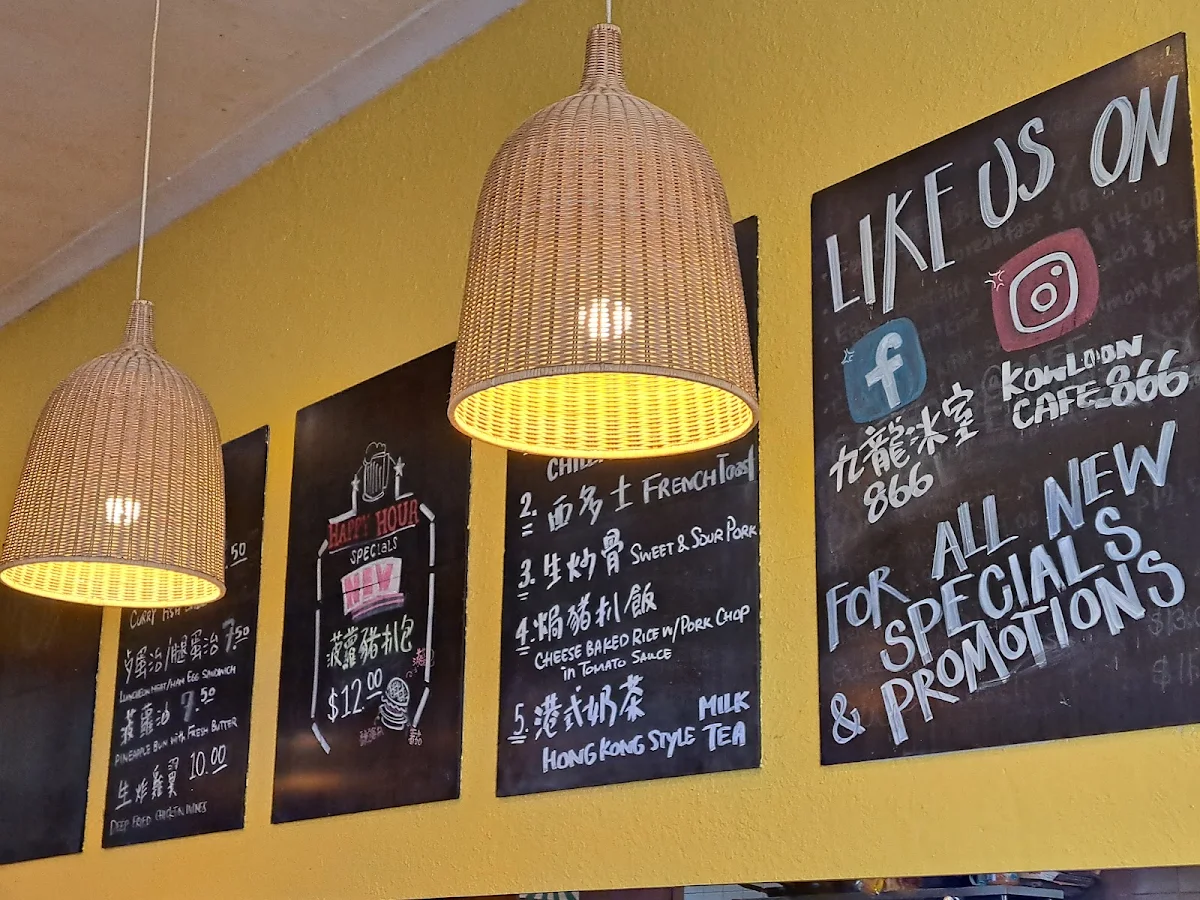 50
CURRY FISH
蛋治/腿蛋治 7.50
LUNCHEON MEAT/HAM EGG SANDWICH
菠蘿油 7.50
PINEAPPLE BUN WITH FRESH BUTTER
生炸雞翼 10.00
DEEP FRIED CHICKEN WINGS
HAPPY HOUR
SPECIALS
NEW
菠蘿豬扒包
$12.00
2. 西多士 FRENCH Toast
3. 生炒骨 SWEET & SOUR PORK
4. 焗豬扒飯
CHEESE BAKED RICE W/ PORK CHOP
in TOMATO SAUCE
5. 港式奶茶 MILK
HONG KONG STYLE TEA
LIKE US ON
f
KOWLOON
CAFE_866
九龍冰室
866
FOR ALL NEW
SPECIALS
& PROMOTIONS